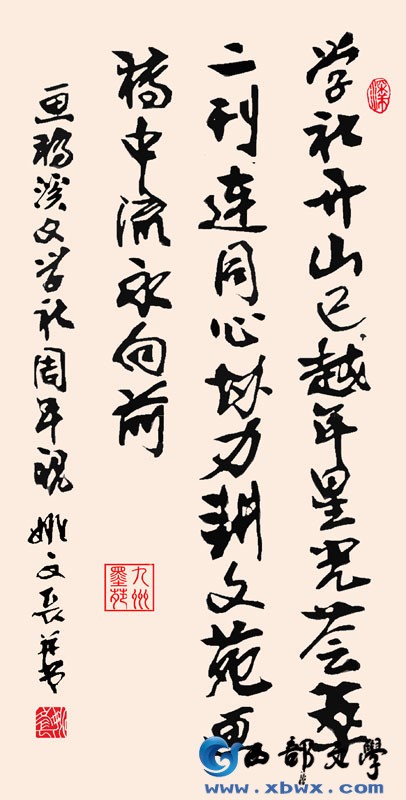 学社开山已越年星光荟萃
二刊连同心协力耕文苑画
稿中流永向前
画稿溪文学社周年 姚文长并书
九州墨苑
西部文學
www.xbwx.com